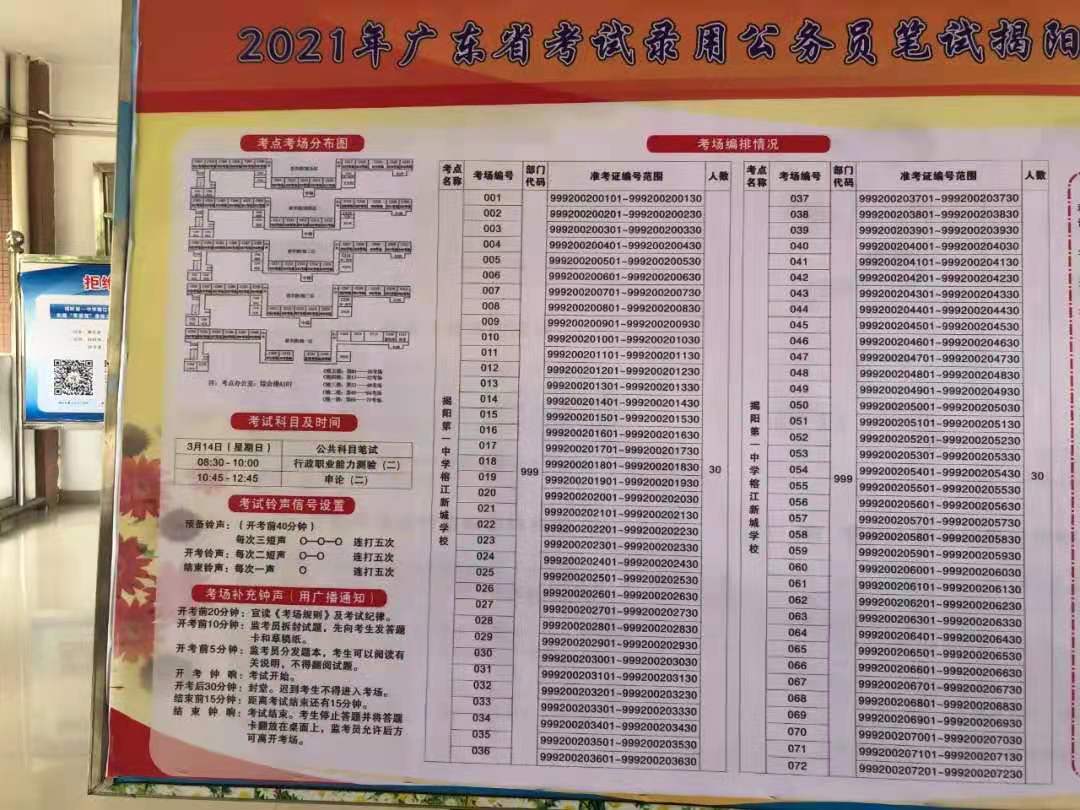 2021年广东省考试录用公务员笔试揭阳
考点考场分布图
注：考点办公室：综合楼
考试科目及时间
3月14日（星期日） 公共科目笔试
08:30-10:00 行政职业能力测验（二）
10:45-12:45 申论（二）
考试铃声信号设置
预备铃声：（开考前40分钟）
每次三短声 O—O—O 连打五次
开考铃声：每次二短声 O—O 连打五次
结束铃声：每次一声 O 连打五次
考场补充钟声（用广播通知）
开考前20分钟：宣读《考场规则》及考试纪律。
开考前10分钟：监考员拆封试题，先向考生发答题
卡和草稿纸。
开考前5分钟：监考员分发题本，考生可以阅读有
关说明，不得翻阅试题。
开考钟响：考试开始。
开考后30分钟：封堂。迟到考生不得进入考场。
结束前15分钟：距离考试结束还有15分钟。
结束钟响：考试结束。考生停止答题并将答题
卡翻放在桌面上，监考员允许后方
可离开考场。
考场编排情况
考点名称 考场编号 部门代码 准考证编号范围 人数
揭阳第一中学榕江新城学校 999 30
001 999200200101-999200200130
002 999200200201-999200200230
003 999200200301-999200200330
004 999200200401-999200200430
005 999200200501-999200200530
006 999200200601-999200200630
007 999200200701-999200200730
008 999200200801-999200200830
009 999200200901-999200200930
010 999200201001-999200201030
011 999200201101-999200201130
012 999200201201-999200201230
013 999200201301-999200201330
014 999200201401-999200201430
015 999200201501-999200201530
016 999200201601-999200201630
017 999200201701-999200201730
018 999200201801-999200201830
019 999200201901-999200201930
020 999200202001-999200202030
021 999200202101-999200202130
022 999200202201-999200202230
023 999200202301-999200202330
024 999200202401-999200202430
025 999200202501-999200202530
026 999200202601-999200202630
027 999200202701-999200202730
028 999200202801-999200202830
029 999200202901-999200202930
030 999200203001-999200203030
031 999200203101-999200203130
032 999200203201-999200203230
033 999200203301-999200203330
034 999200203401-999200203430
035 999200203501-999200203530
036 999200203601-999200203630
考点名称 考场编号 部门代码 准考证编号范围 人数
揭阳第一中学榕江新城学校 999 30
037 999200203701-999200203730
038 999200203801-999200203830
039 999200203901-999200203930
040 999200204001-999200204030
041 999200204101-999200204130
042 999200204201-999200204230
043 999200204301-999200204330
044 999200204401-999200204430
045 999200204501-999200204530
046 999200204601-999200204630
047 999200204701-999200204730
048 999200204801-999200204830
049 999200204901-999200204930
050 999200205001-999200205030
051 999200205101-999200205130
052 999200205201-999200205230
053 999200205301-999200205330
054 999200205401-999200205430
055 999200205501-999200205530
056 999200205601-999200205630
057 999200205701-999200205730
058 999200205801-999200205830
059 999200205901-999200205930
060 999200206001-999200206030
061 999200206101-999200206130
062 999200206201-999200206230
063 999200206301-999200206330
064 999200206401-999200206430
065 999200206501-999200206530
066 999200206601-999200206630
067 999200206701-999200206730
068 999200206801-999200206830
069 999200206901-999200206930
070 999200207001-999200207030
071 999200207101-999200207130
072 999200207201-999200207230
拒绝